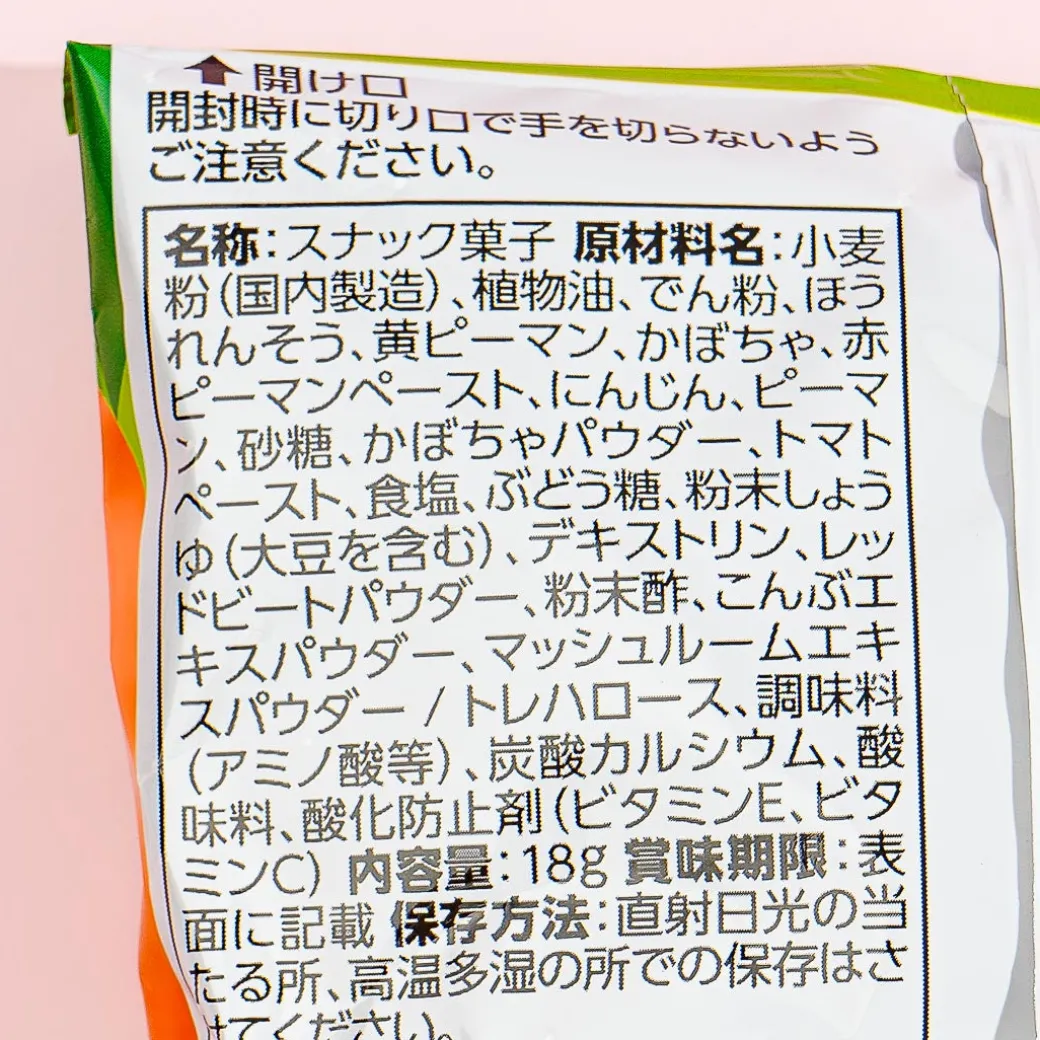 開け口
開封時に切り口で手を切らないよう
ご注意ください。
名称：スナック菓子 原材料名：小麦
粉（国内製造）、植物油、でん粉、ほう
れんそう、黄ピーマン、かぼちゃ、赤
ピーマンペースト、にんじん、ピーマ
ン、砂糖、かぼちゃパウダー、トマト
ペースト、食塩、ぶどう糖、粉末しょう
ゆ（大豆を含む）、デキストリン、レッ
ドビートパウダー、粉末酢、こんぶエ
キスパウダー、マッシュルームエキ
スパウダー / トレハロース、調味料
（アミノ酸等）、炭酸カルシウム、酸
味料、酸化防止剤（ビタミンE、ビタ
ミンC） 内容量：18g 賞味期限：表
面に記載 保存方法：直射日光の当
たる所、高温多湿の所での保存はさ
けてください。